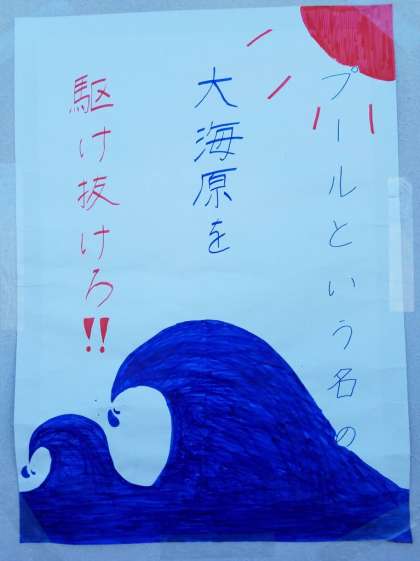 プールという名の
大海原を
駆け抜けろ!!